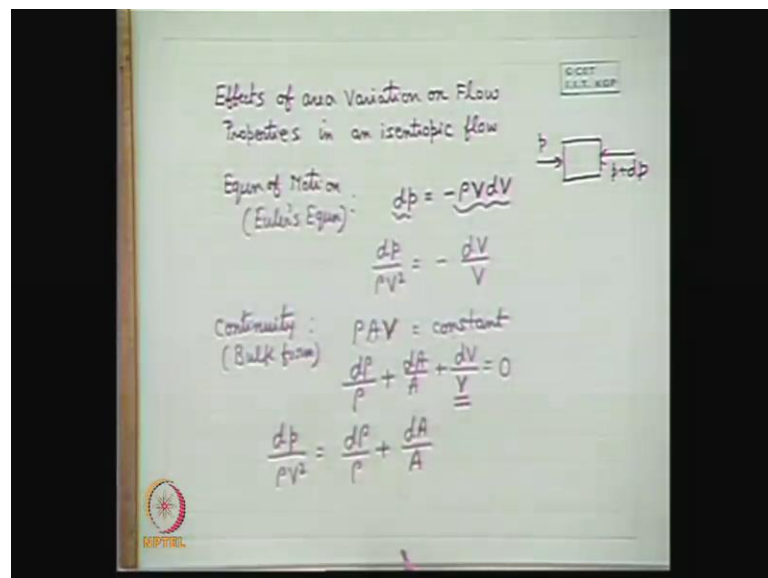 Effects of area Variation on Flow
Properties in an isentropic flow
© CET
I.I.T. KGP
p
p+dp
Equn of Motion
(Euler's Equn):
dp = -ρVdV
dp/ρV² = - dV/V
Continuity :
(Bulk form)
ρAV = constant
dρ/ρ + dA/A + dV/V = 0
dp/ρV² = dρ/ρ + dA/A
NPTEL